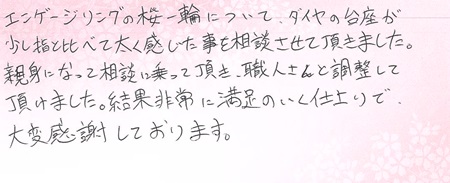 エンゲージリングの桜一輪について、ダイヤの台座が
少し指と比べて太く感じた事を相談させて頂きました。
親身になって相談に乗って頂き、職人さんと調整して
頂けました。結果非常に満足のいく仕上りで、
大変感謝しております。